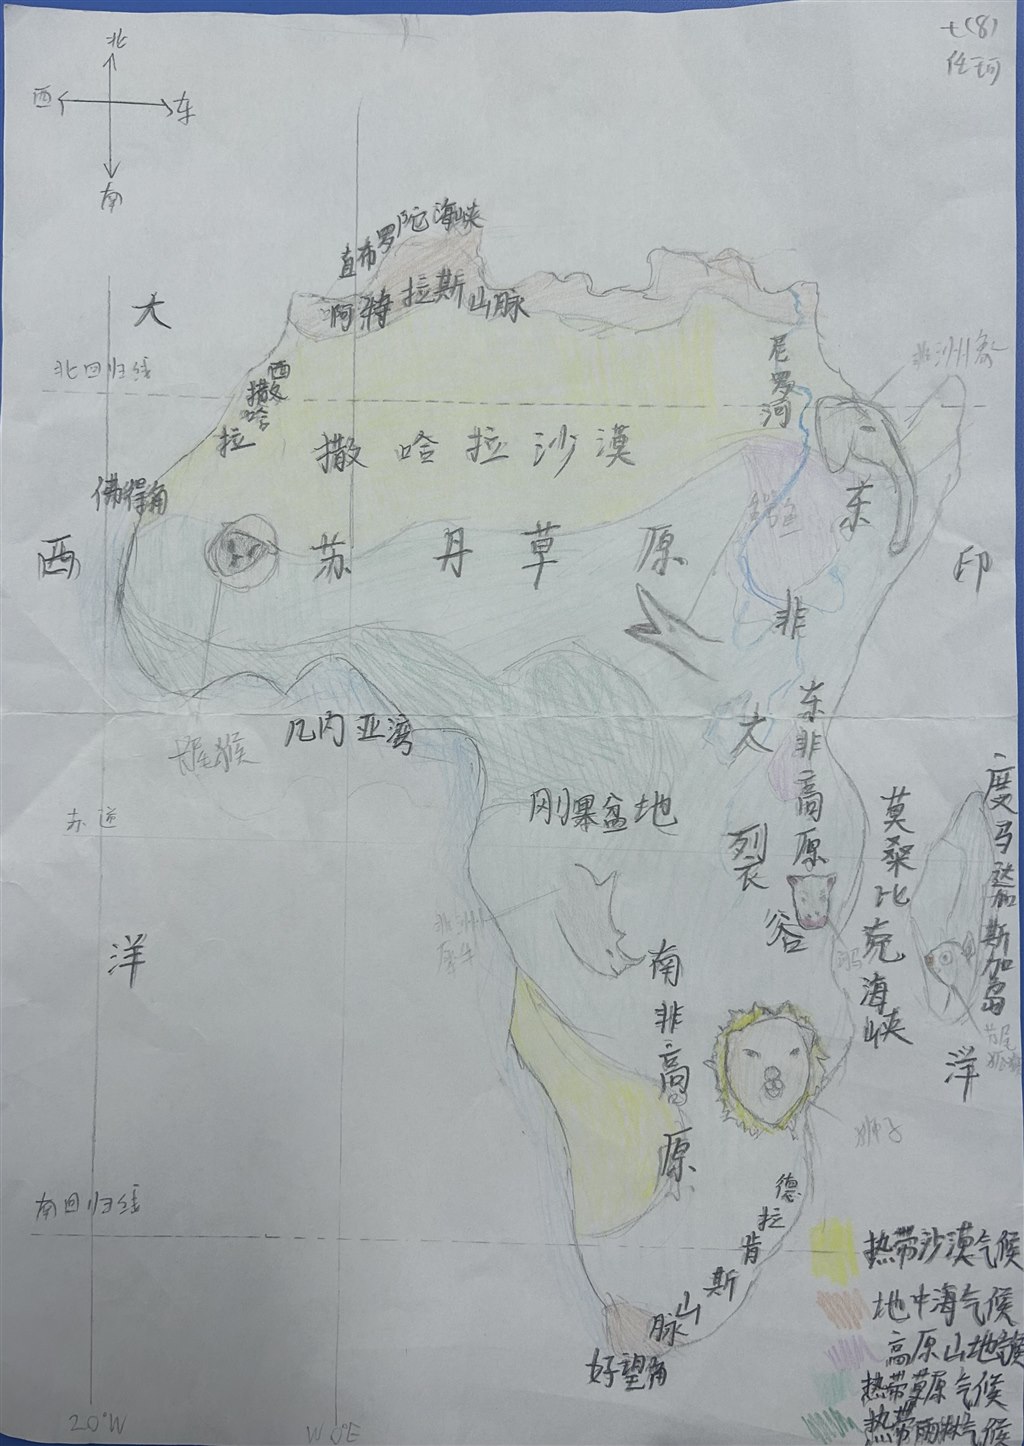 七(8)
任珂
北
西 东
南
直布罗陀海峡
阿特拉斯山脉
大
西
洋
北回归线
西撒哈拉
尼罗河
非洲象
撒哈拉沙漠
佛得角
苏丹草原
东非大裂谷
印
洋
几内亚湾
长尾猴
赤道
刚果盆地
东非高原
莫桑比克海峡
度
马达加斯加岛
非洲犀牛
河马
南非高原
狮子
德拉肯斯山脉
南回归线
好望角
热带沙漠气候
地中海气候
高原山地气候
热带草原气候
热带雨林气候
20°W
W 0° E